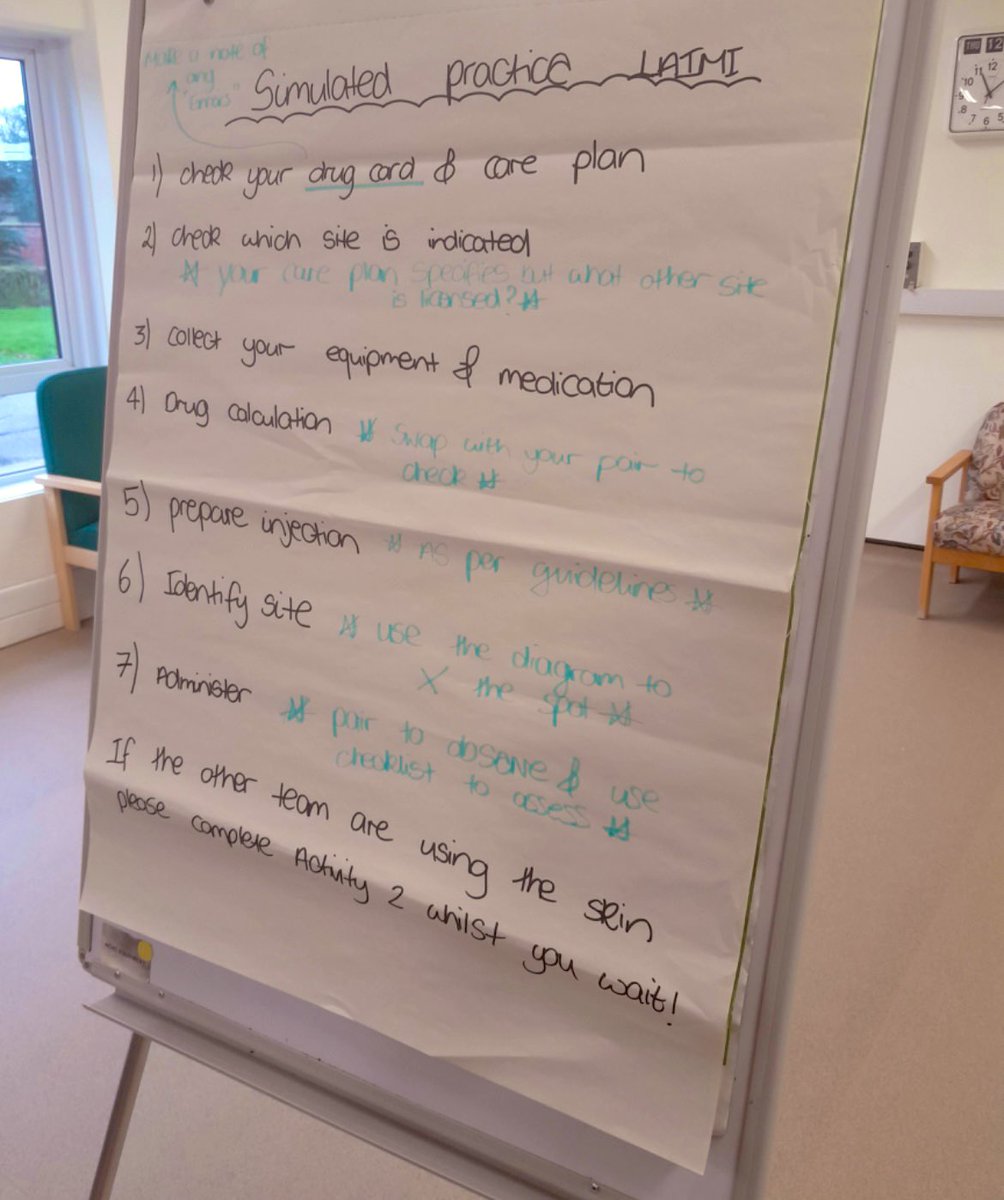 Make a note of
any
"Errors"
Simulated practice LAIMI
1) check your drug card & care plan
2) check which site is indicated
* your care plan specifies but what other site
is licensed? *
3) collect your equipment & medication
4) Drug calculation * Swap with your pair to
check *
5) prepare injection * As per guidelines *
6) Identify site * use the diagram to
X the spot *
7) Administer * pair to observe & use
checklist to assess *
If the other team are using the skin
please complete Activity 2 whilst you wait!
THU 12
11 12
10
9
8
7 6 5